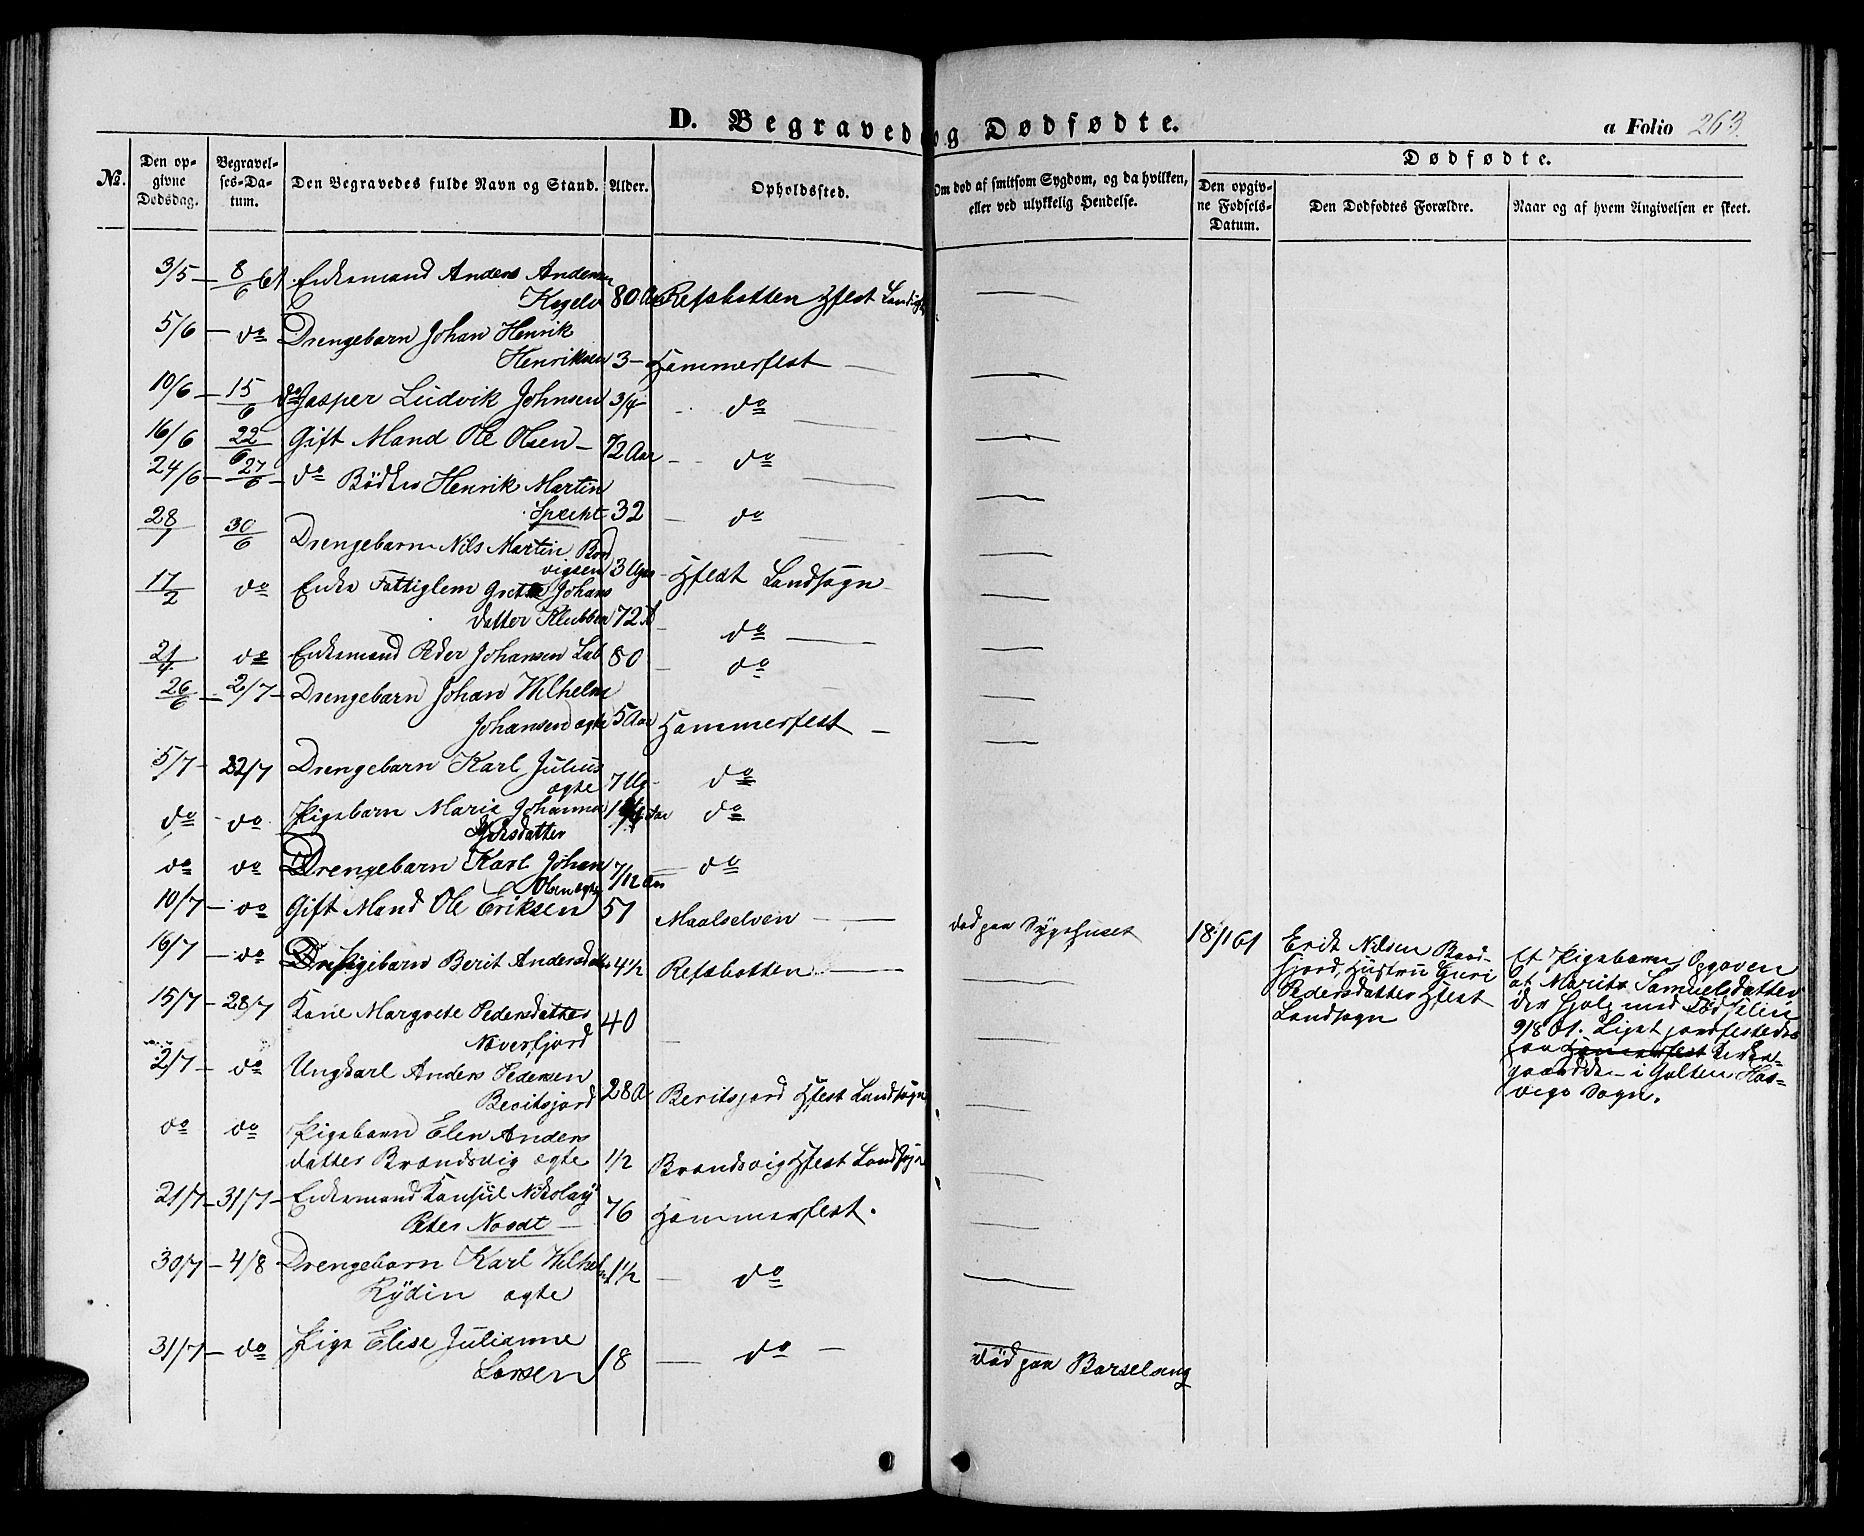 D. Begravede og Dødfødte.
a Folio 263.
No.
Den opgivne Dødsdag.
Begravelses-Datum.
Den Begravedes fulde Navn og Stand.
Alder.
Opholdssted.
Om død af smitsom Sygdom, og da hvilken, eller ved ulykkelig Hendelse.
Dødfødte.
Den opgivne Fødsels-Datum.
Den Dødfødtes Forældre.
Naar og af hvem Angivelsen er skeet.
3/5 — 8/6 61 Enkemand Anders Andersen
80 Aar Refsbotten Hfest Landsogn
5/6 — do Drengebarn Johan Henrik
Henriksen 3 — Hammerfest
10/6 — 15/6 do Jasper Ludvik Johnsen 3/4 do
16/6 22/6 Gift Mand Ole Olsen — 72 Aar — do
24/6 — 27/6 — do Bødker Henrik Martin
Specht 32 — do
28/1 30/6 Drengebarn Nils Martin Bod
vigsen 3 Uger Hfest Landsogn
17/2 do Enke Fattiglem Grete Johans
datter Klubben 72 A do
21/4 do Enkemand Peder Johansen Lab 80 — do
26/6 — 2/7 — Drengebarn Johan Wilhelm
Johansen ægte 5 Aar Hammerfest —
5/7 — 22/7 Drengebarn Karl Julius
ægte 7 Ug — do
do do Pigebarn Marie Johanna
do
do do Drengebarn Karl Johan
Olsen ægte 7/12 Aar do
10/7 — do Gift Mand Ole Eriksen 51 Maalselven — død paa Sygehuset
16/7 — do Pigebarn Berit Andersdatter 4 1/2 Refsbotten —
15/7 — 28/7 Kone Margrete Pedersdatter
Næverfjord 40 —
2/7 — do Ungkarl Anders Pedersen
Beritsjord 28 A Beritsjord Hfest Landsogn
do do Pigebarn Elen Anders
datter Brandsvig ægte 1/2 Brandsvig Hfest Landsogn
21/7 — 31/7 — Enkemand Konsul Nikolay
Peter Noodt — 76 Hammerfest.
30/7 — 4/8 Drengebarn Karl Wilhelm
Rydin ægte 1 1/2 — do
31/7 — do Pige Elise Julianne
Larsen 18 — do — død paa Barselseng
18/1 61
Erik Nilsen
fjord, Hustru Guri
Pedersdatter Hfest
Landsogn
Et Pigebarn, Opgaven
at Marit Samuelsdatter
der hjalp med Fødselen
9/8 61. Liget jordfestedes
paa Hammerfest Kirke-
gaard — i Galten Has-
vigs Sogn.